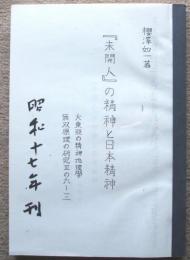 櫻澤如一著
『未開人』の精神と日本精神
大東亜の精神地理學
無双原理の研究五の六—二
昭和十七年刊